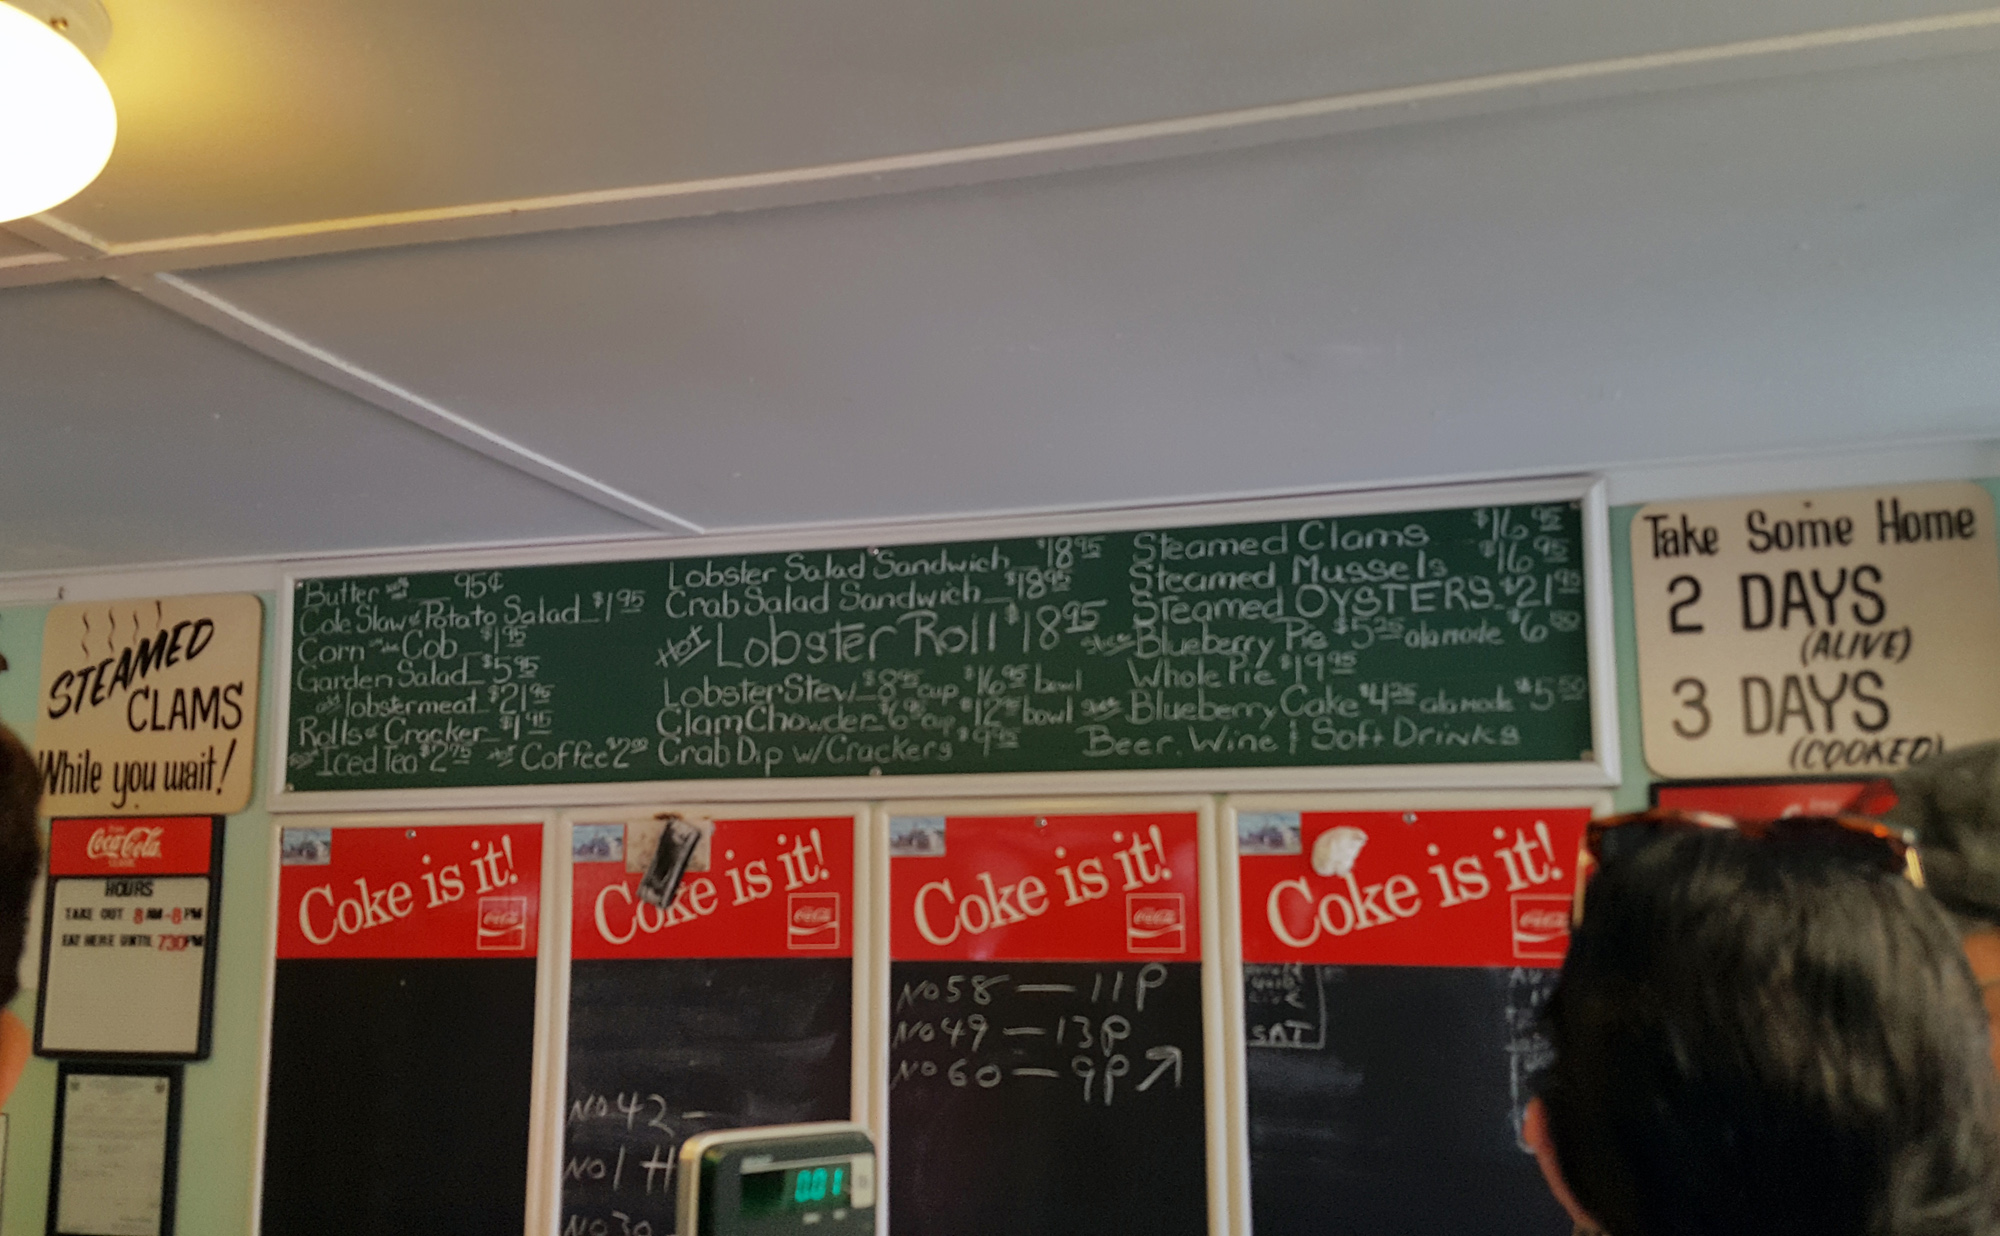 Butter 95¢
Cole Slaw & Potato Salad $1.95
Corn on the Cob $1.95
Garden Salad $5.95
add lobstermeat $21.95
Rolls & Cracker $1.95
Iced Tea $2.75 Hot Coffee $2.00
Lobster Salad Sandwich $18.95
Crab Salad Sandwich $18.95
Hot Lobster Roll $18.95
Lobster Stew $8.95 cup $16.95 bowl
Clam Chowder $6.95 cup $12.95 bowl
Crab Dip w/Crackers $9.95
Steamed Clams $16.95
Steamed Mussels $16.95
Steamed OYSTERS $21.95
slice Blueberry Pie $5.25 ala mode $6.50
Whole Pie $19.95
slice Blueberry Cake $4.25 ala mode $5.50
Beer, Wine & Soft Drinks
STEAMED
CLAMS
While you wait!
Take Some Home
2 DAYS
(ALIVE)
3 DAYS
(COOKED)
Coca-Cola
CLASSIC
HOURS
TAKE OUT 8 AM-8 PM
EAT HERE UNTIL 730PM
Coke is it!
Coca-Cola
Coke is it!
Coca-Cola
No 42 —
No 1 H
No 30
0.01
Coke is it!
Coca-Cola
No 58 — 11P
No 49 — 13P
No 60 — 9P
Coke is it!
Coca-Cola
SAT